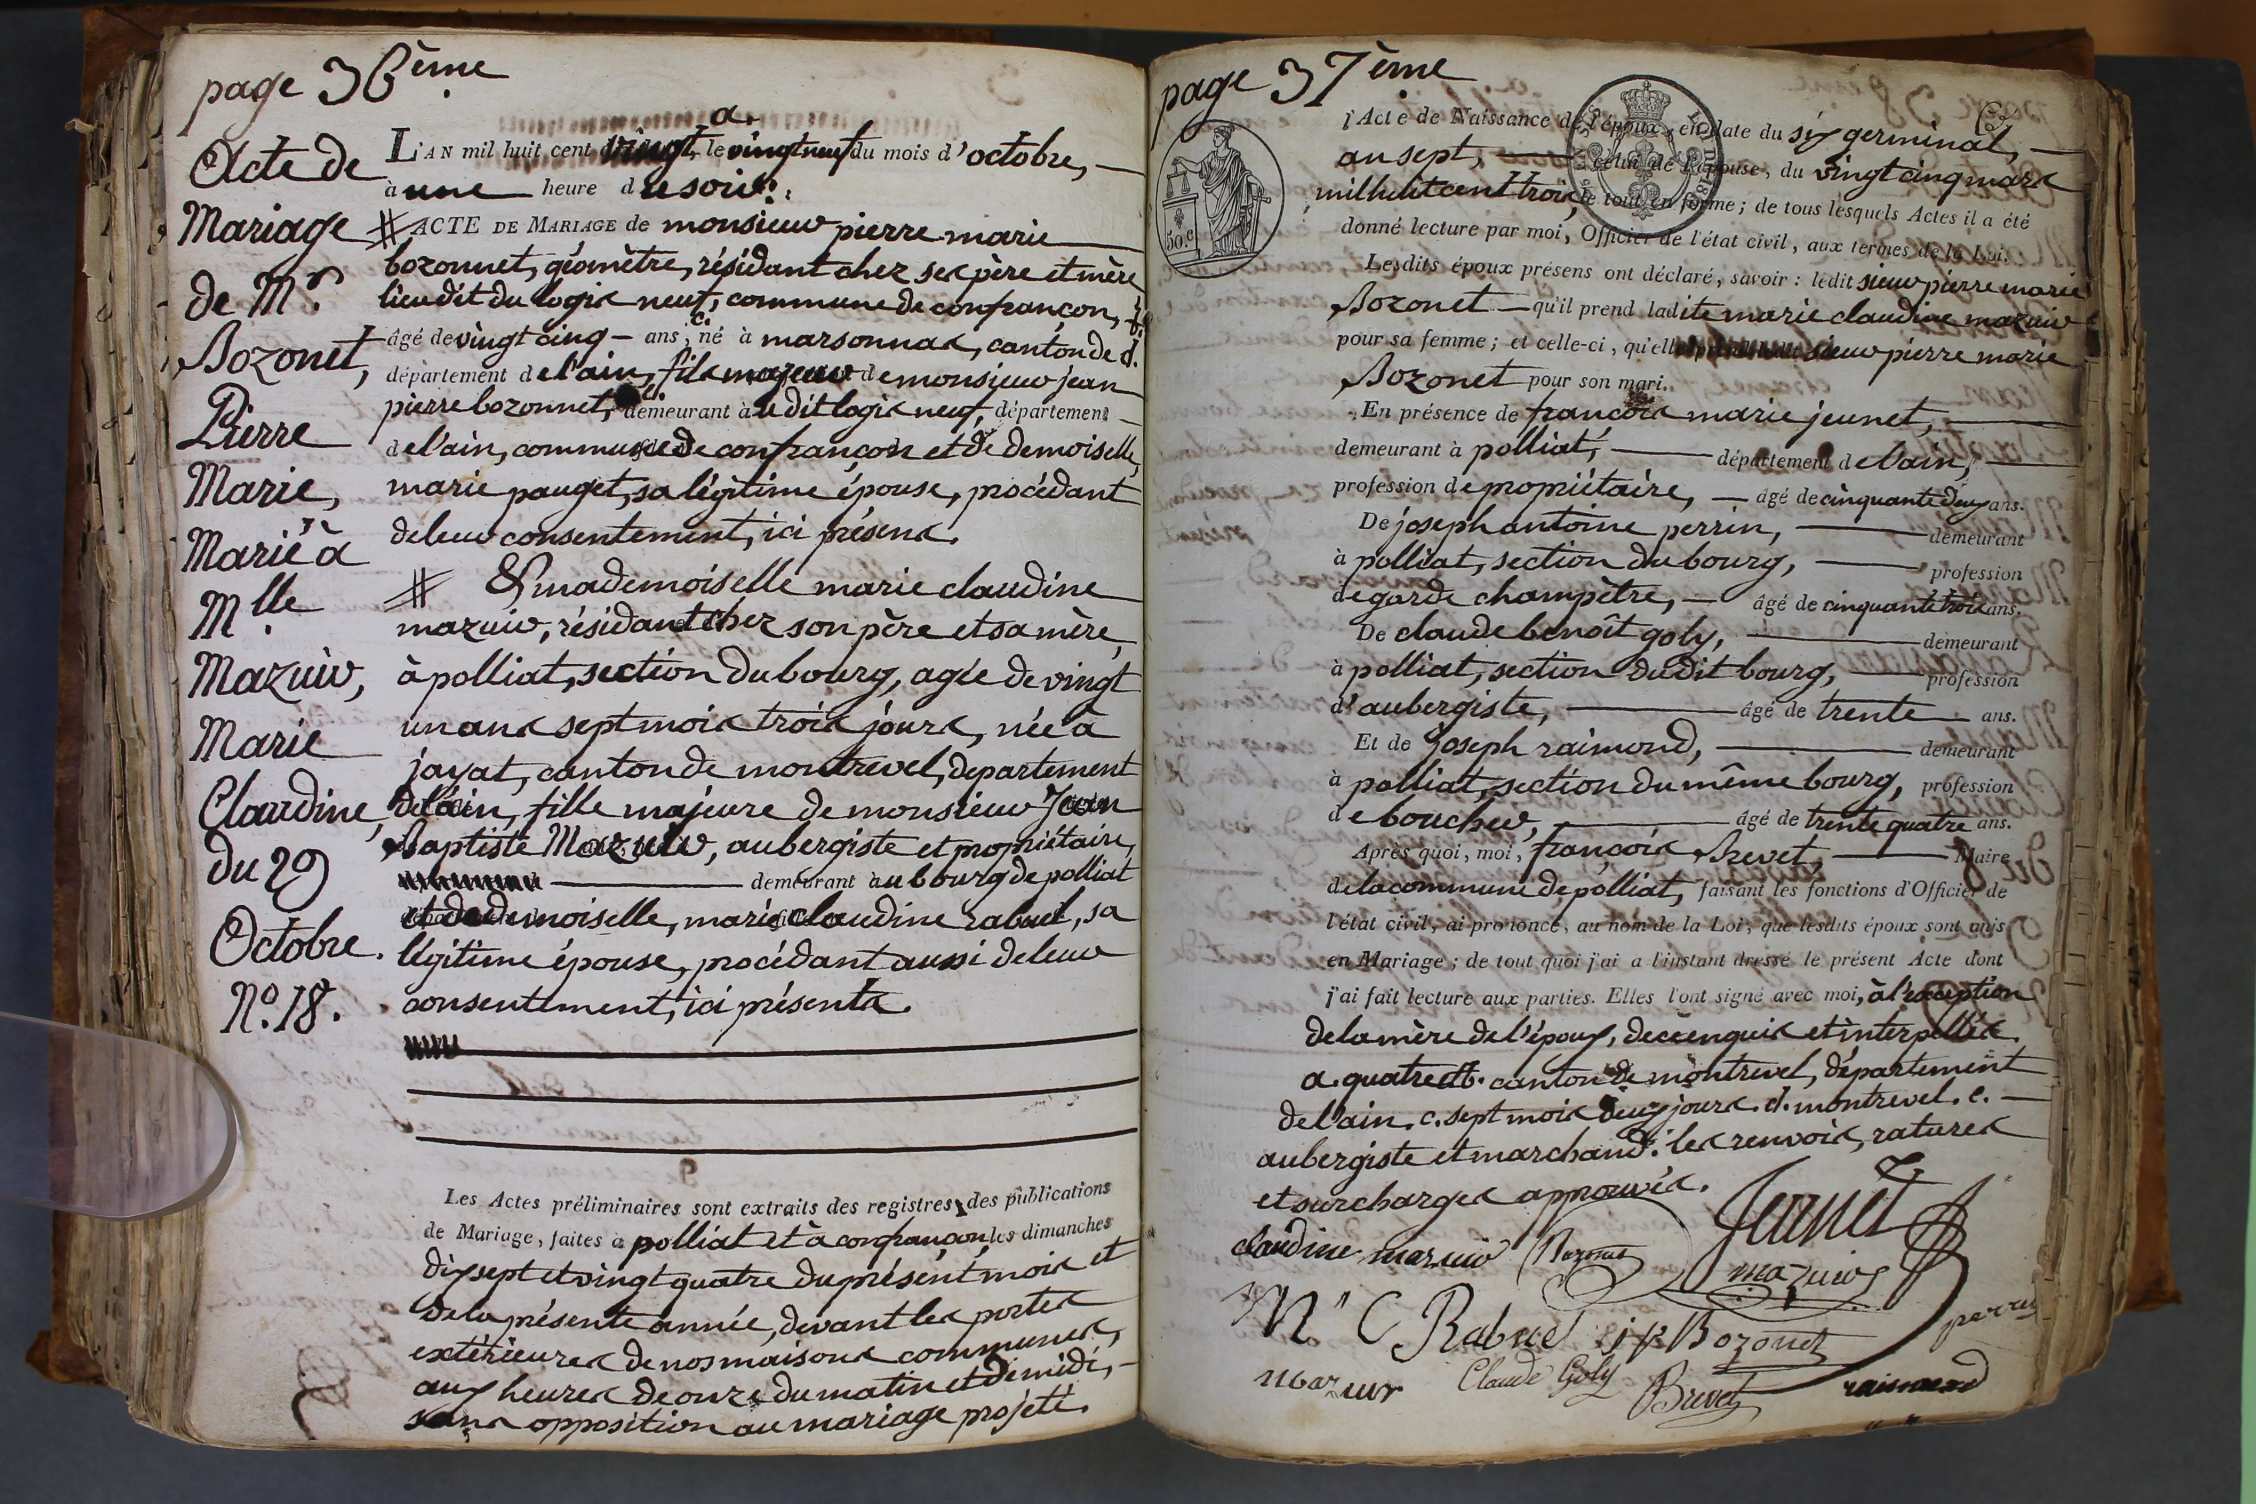 page 36ème.
Acte de
Mariage
de Mr.
Bozonet,
Pierre
Marie,
Marié à
Mlle.
Mazuir,
Marie
Claudine,
du 29
Octobre.
N.º 18.
a.
L'AN mil huit cent vingt, le vingt neuf du mois d'octobre, —
à une heure de soir.
# ACTE DE MARIAGE de monsieur pierre marie
bozonnet, géomètre, résidant chez ses père et mère
lieu dit du logis neuf, commune de confrançon, b.
âgé de vingt cinq — ans, c. né à marsonnas, canton de d.
département de l'ain, fils majeur de monsieur jean
pierre bozonnet, e. demeurant à le dit logis neuf, département
de l'ain, commune de confrançon et de demoiselle,
marie pauget, sa légitime épouse, procédant
de leur consentement, ici présens.
# & mademoiselle marie claudine
mazuir, résidant chez son père et sa mère,
à polliat, section du bourg, agée de vingt
un ans sept mois trois jours, née à
jayat, canton de montrevel, departement
de l'ain, fille majeure de monsieur Jean
Baptiste Mazuir, aubergiste et propriétaire,
demeurant au bourg de polliat
et de demoiselle, marie claudine rabuel, sa
légitime épouse, procédant aussi de leur
consentement, ici présents.
Les Actes préliminaires sont extraits des registres des publications
de Mariage, faites à polliat et à confrançon, les dimanches
dix sept et vingt quatre du présent mois et
de la présente année, devant les portes
extérieures de nos maisons communes,
aux heures de onze du matin et de midi, —
sans opposition au mariage projété.
page 37ème.
50.c
l'Acte de Naissance de l'époux, en date du six germinal, —
an sept, — celui de l'épouse, du vingt cinq mars
mil huit cent trois, le tout en forme; de tous lesquels Actes il a été
donné lecture par moi, Officier de l'état civil, aux termes de la Loi.
Lesdits époux présens ont déclaré, savoir: ledit sieur pierre marie
Bozonet — qu'il prend ladite marie claudine mazuir
pour sa femme; et celle-ci, qu'elle sieur pierre marie
Bozonet pour son mari.
En présence de françois marie jeunet, —
demeurant à polliat, — département de l'ain, —
profession de propriétaire, — âgé de cinquante deux ans.
De joseph antoine perrin, — demeurant
à polliat, section du bourg, — profession
de garde champêtre, — âgé de cinquante trois ans.
De claude benoît goly, — demeurant
à polliat, section dudit bourg, — profession
d'aubergiste, — âgé de trente — ans.
Et de joseph raimond, — demeurant
à polliat, section du même bourg, profession
de boucher, — âgé de trente quatre ans.
Après quoi, moi, françois Brevet, — Maire
de la commune de polliat, faisant les fonctions d'Officier de
l'état civil, ai prononcé, au nom de la Loi, que lesdits époux sont unis
en Mariage; de tout quoi j'ai a l'instant dressé le présent Acte dont
j'ai fait lecture aux parties. Elles l'ont signé avec moi, à l'exception
de la mère de l'époux, de ce enquis et interpellés.
a. quatre et b. canton de montrevel, département
de l'ain. c. sept mois deux jours. d. montrevel. e. —
aubergiste et marchand. les renvois, ratures
et surcharges approuvés.
Jeunet
claudine mazuir Bozonet
mazuir
M C Rabuel j p Bozonet perrin
mazuir Claude Goly Brevet raimond